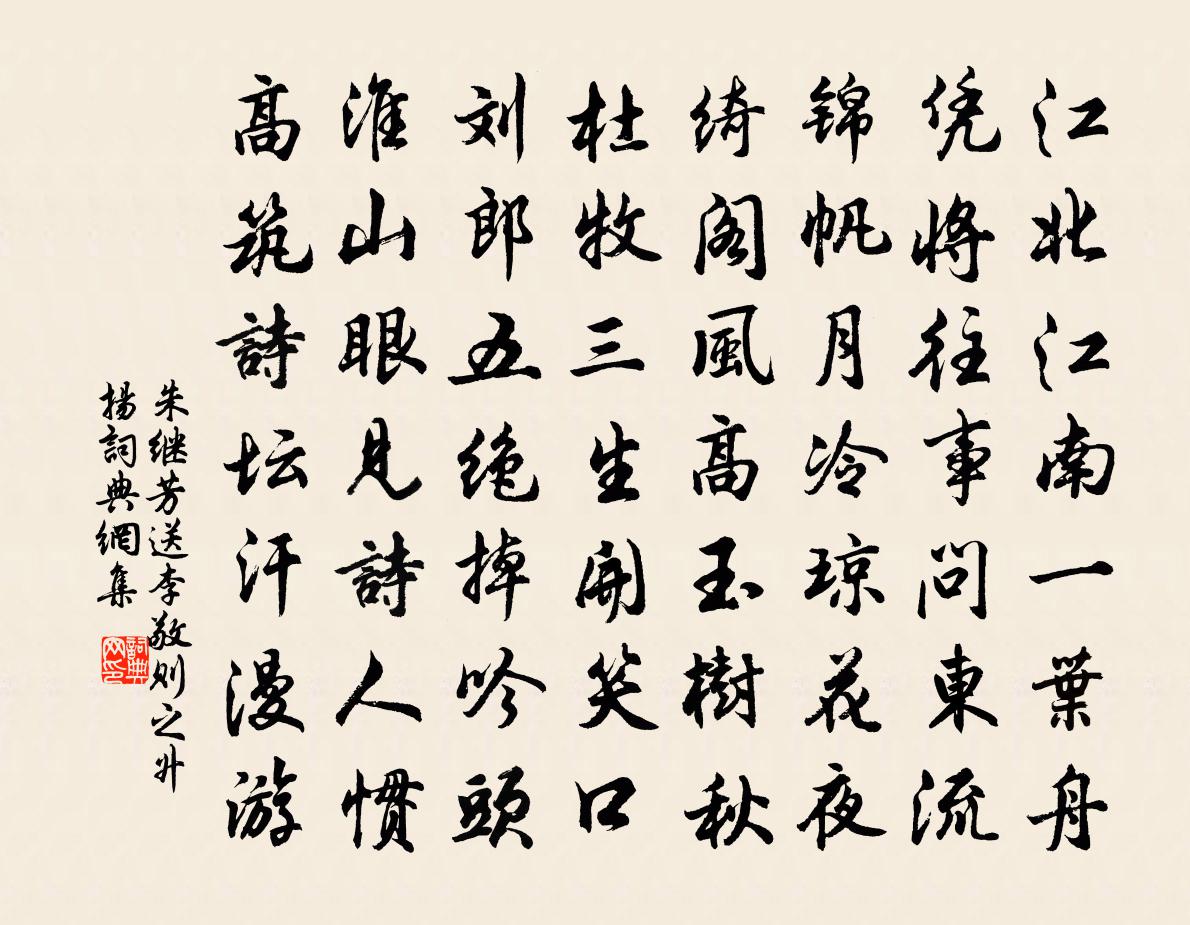 江北江南一葉舟
凭將往事問東流
锦帆月冷琼花夜
绮阁風高玉樹秋
杜牧三生開笑口
刘郎五绝掉吟頭
淮山眼見詩人慣
高筑詩坛汗漫游
朱继芳送李敬则之升
揚詞典網集
詞典网印